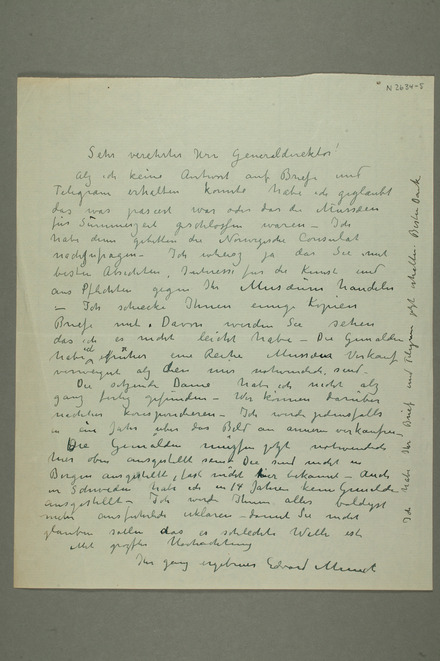 N 2634-5
Sehr verehrter Herr Generaldirektor!
Als ich keine Antwort auf Briefe und
Telegram erhalten konnte habe ich geglaubt
das was passert war oder das die Museen
für Sommerzeit geschlossen waren – Ich
habe dann gebeten die Norwegische Consulat
nachzufragen – Ich weiss ja das Sie mit
besten Absichten, Interesse für die Kunst und
aus Pflichten gegen Ihr Museum handeln
– Ich schicke Ihnen einige Kopien
Briefe mit. Davon werden Sie sehen
das ich es nicht leicht habe – Die Gemälden
habe ich früher eine Reihe Museen Verkauf
verweigert als mir notwendig sind –
Die sitzende Dame habe ich nicht als
ganz fertig gefunden – Wir können darüber
nachher korrespondieren – Ich werde jedenfalls
in ein Jahr über das Bild an andere verkaufen –
Die Gemälden müssen jetzt notwendig
hier oben ausgestellt sein – Die sind nicht in
Bergen ausgestellt, fast nicht hier bekannt – Auch
in Schweden habe ich in 14 Jahren keine Gemälde
ausgestellt – Ich werde Ihnen alles baldigst
mehr ausführlich erklären – damit Sie nicht
glauben sollen das es schlechte Wille ist
Mit grosser Hochachtung
Ihr ganz ergebener Edvard Munch
Ich habe Ihr Brief und Telegram jetzt erhalten. Besten Dank